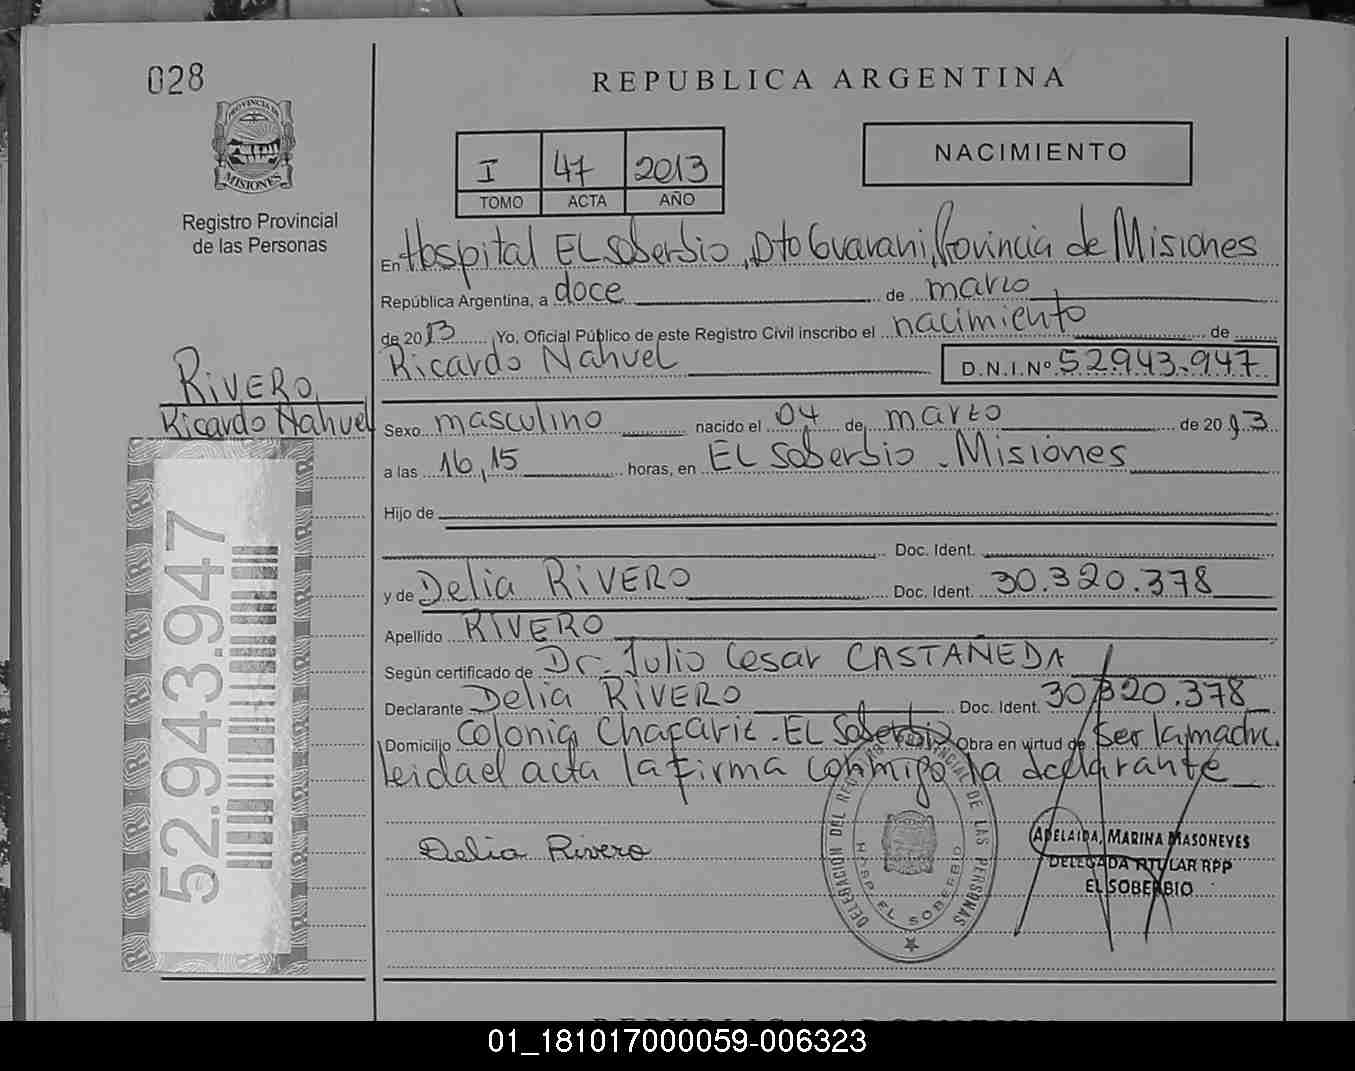 028
REPUBLICA ARGENTINA
PROVINCIA DE
MISIONES
Registro Provincial
de las Personas
I 47 2013
TOMO ACTA AÑO
NACIMIENTO
En Hospital EL Soberbio, Dto Guarani, Provincia de Misiones
República Argentina, a doce de marzo
de 2013 Yo, Oficial Público de este Registro Civil inscribo el nacimiento de
Ricardo Nahuel D.N.I.Nº 52.943.947
RIVERO
Ricardo Nahuel
Sexo masculino nacido el 04 de marzo de 2013
a las 16,15 horas, en EL Soberbio. Misiones
Hijo de
Doc. Ident.
y de Delia RIVERO Doc. Ident. 30.320.378
Apellido RIVERO
Según certificado de Dr. Julio Cesar CASTAÑEDA
Declarante Delia RIVERO Doc. Ident. 30.320.378
Domicilio Colonia Chafariz. EL Soberbio Obra en virtud de Ser la madre.
leida el acta la firma conmigo la declarante
52.943.947
Delia Rivero
DELEGACION DEL REGISTRO PROVINCIAL DE LAS PERSONAS
HOSP. EL SOBERBIO
ADELAIDA, MARINA MASONEVES
DELEGADA TITULAR RPP
EL SOBERBIO
REPUBLICA ARGENTINA
01_181017000059-006323